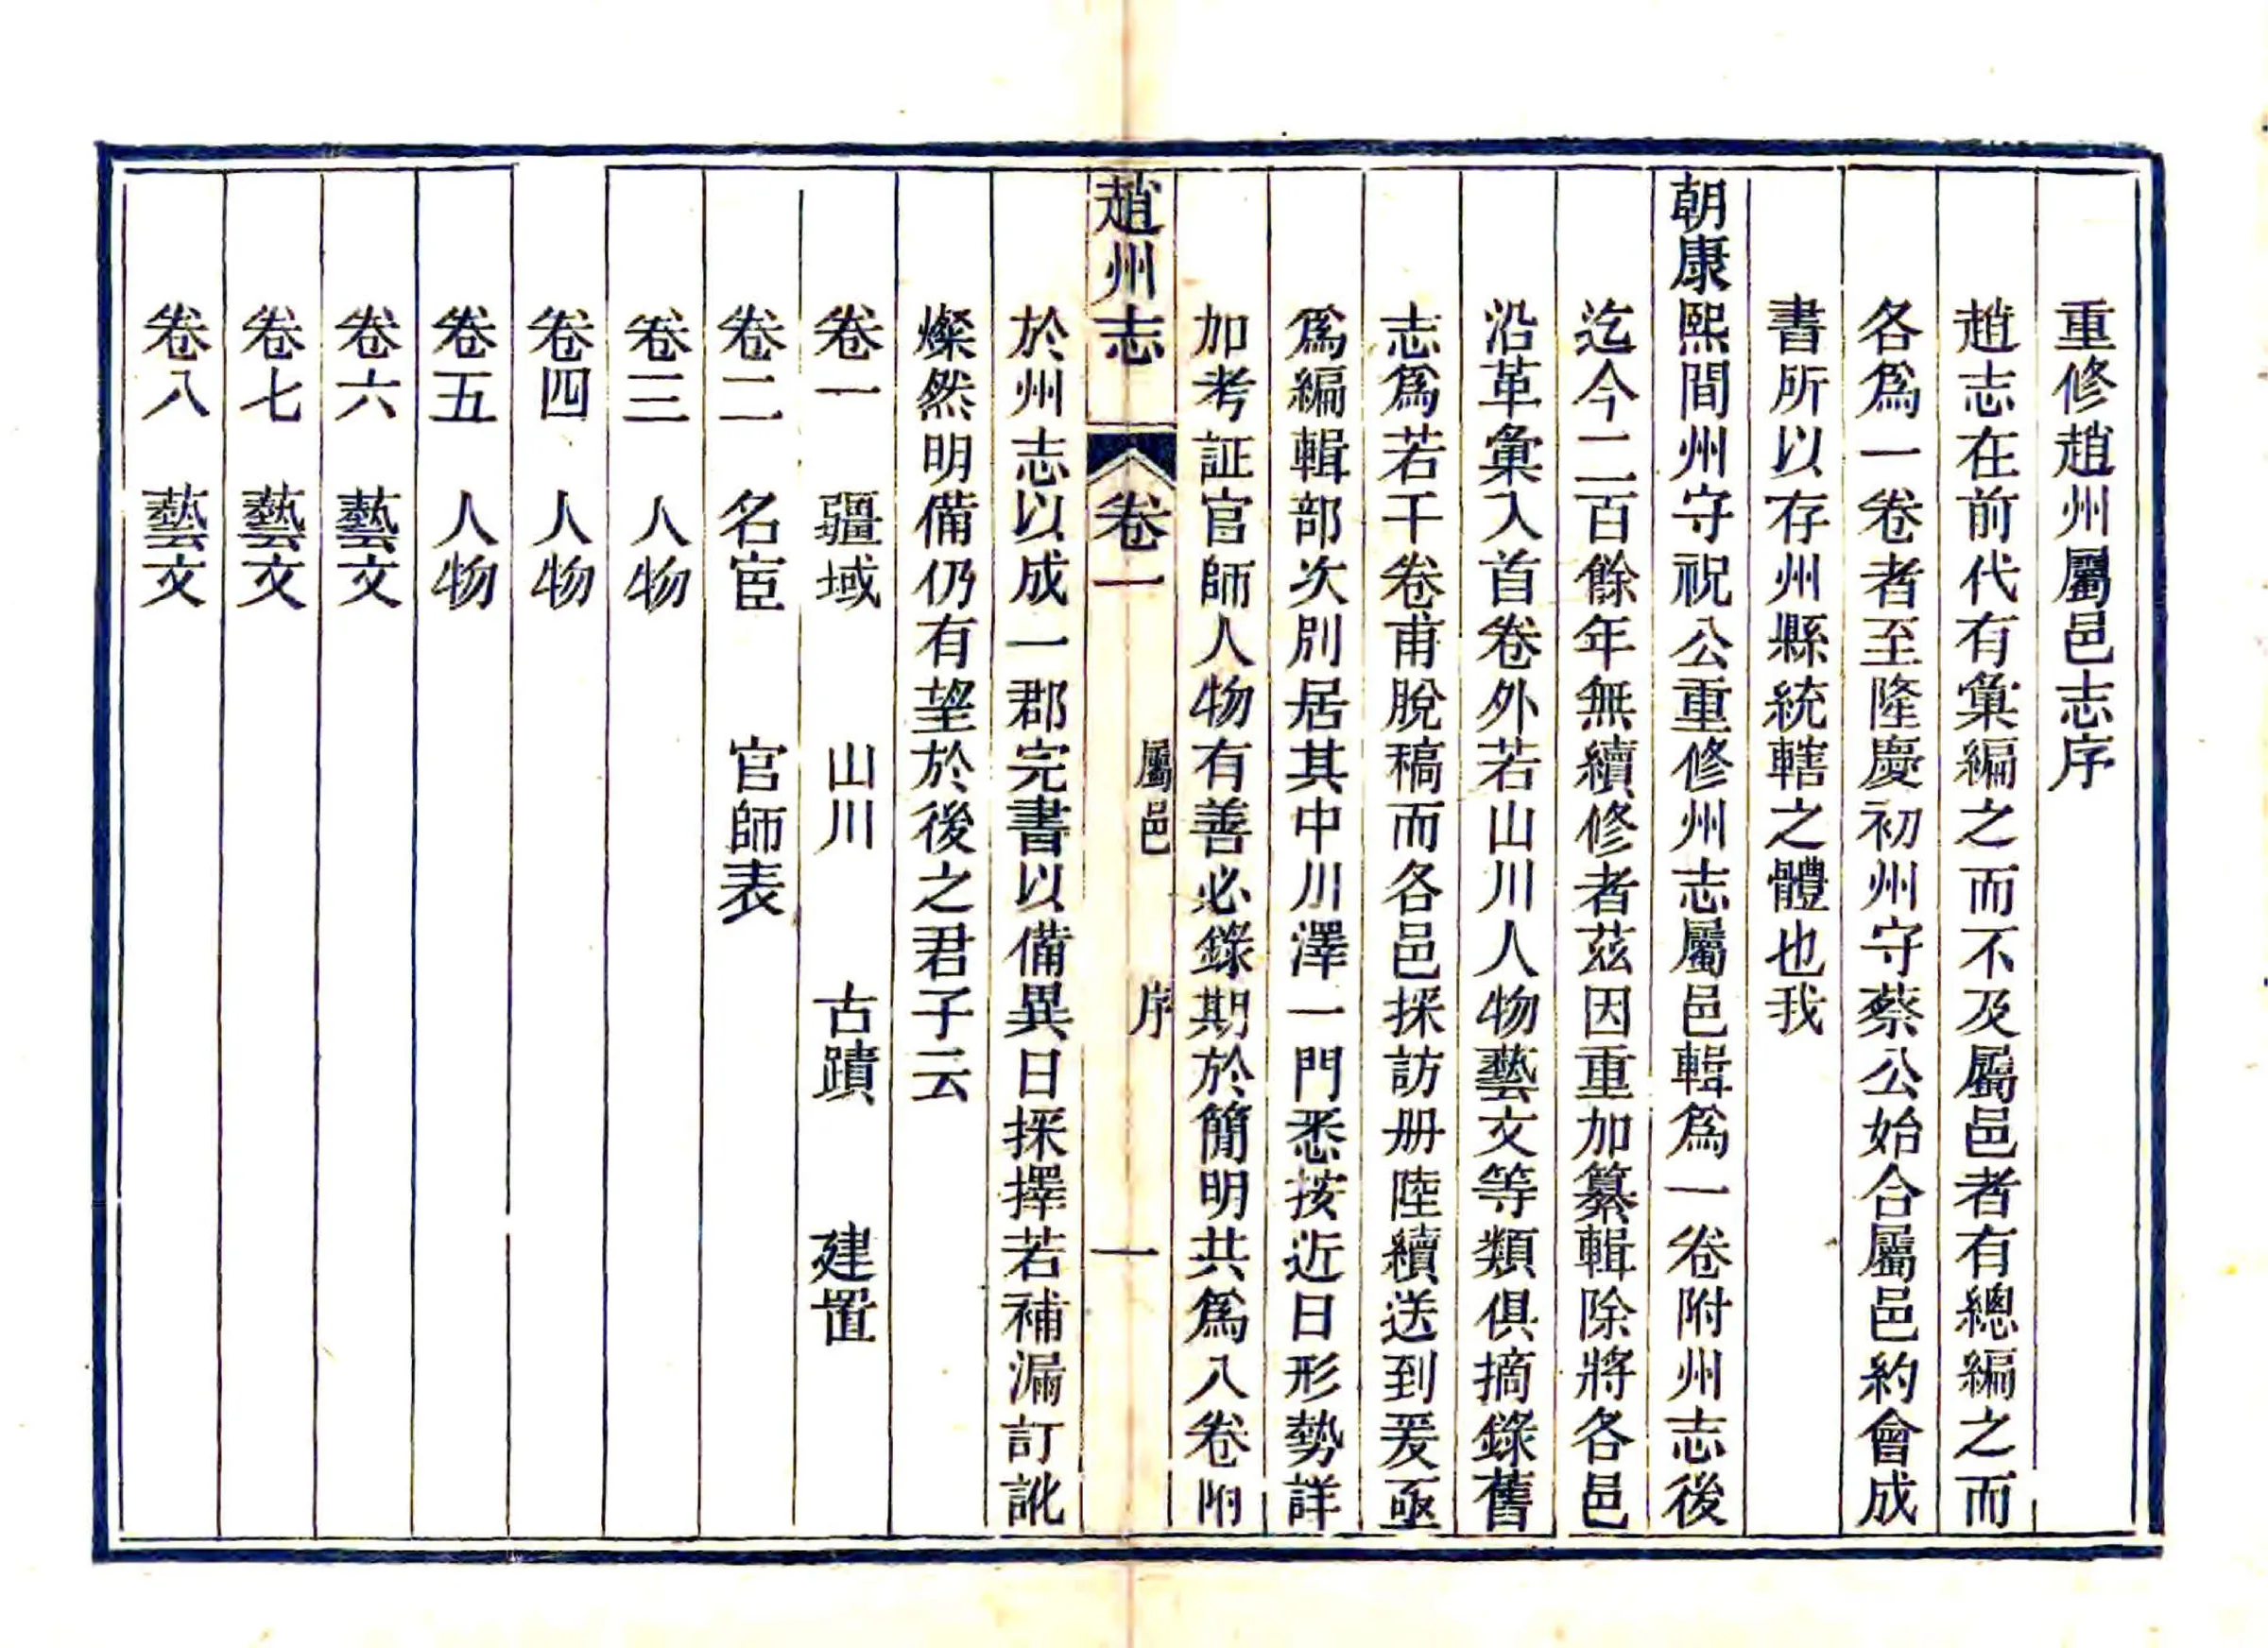 重修趙州屬邑志序
趙志在前代有彙編之而不及屬邑者有總編之而
各爲一卷者至隆慶初州守蔡公始合屬邑約會成
書所以存州縣統轄之體也我
朝康熙間州守祝公重修州志屬邑輯爲一卷附州志後
迄今二百餘年無續修者茲因重加纂輯除將各邑
沿革彙入首卷外若山川人物藝文等類俱摘錄舊
志爲若干卷甫脫稿而各邑採訪册陸續送到爰亟
爲編輯部次別居其中川澤一門悉按近日形勢詳
加考証官師人物有善必錄期於簡明共爲八卷附
趙州志 卷一 屬邑 序 一
於州志以成一郡完書以備異日採擇若補漏訂訛
燦然明備仍有望於後之君子云
卷一 疆域 山川 古蹟 建置
卷二 名宦 官師表
卷三 人物
卷四 人物
卷五 人物
卷六 藝文
卷七 藝文
卷八 藝文